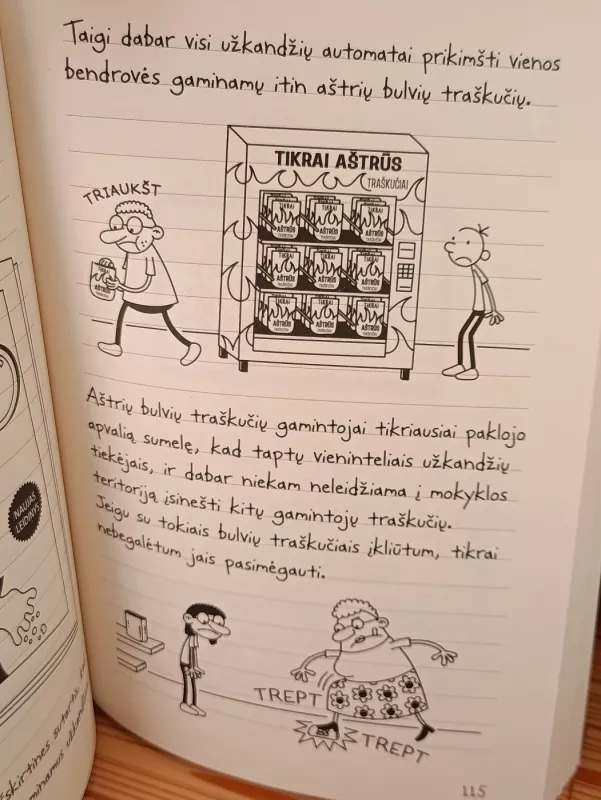 Taigi dabar visi užkandžių automatai prikimšti vienos
bendrovės gaminamų itin aštrių bulvių traškučių.
TRIAUKŠT
TIKRAI AŠTRŪS
TRAŠKUČIAI
TIKRAI
AŠTRŪS
Aštrių bulvių traškučių gamintojai tikriausiai paklojo
apvalią sumelę, kad taptų vieninteliais užkandžių
tiekėjais, ir dabar niekam neleidžiama į mokyklos
teritoriją įsinešti kitų gamintojų traškučių.
Jeigu su tokiais bulvių traškučiais įkliūtum, tikrai
nebegalėtum jais pasimėgauti.
NAUJAS
LEIDINYS
TREPT
TREPT
115